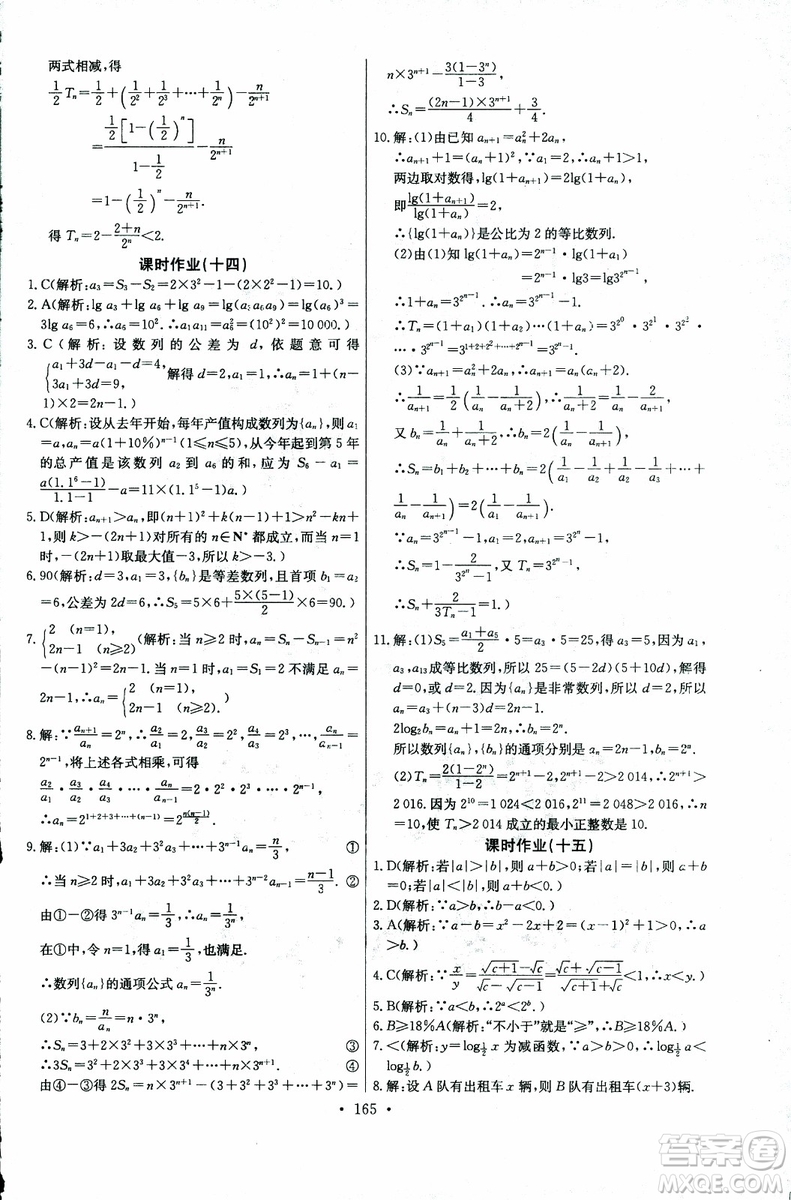 两式相减,得
$\frac{1}{2}T_n=\frac{1}{2}+\left(\frac{1}{2^2}+\frac{1}{2^3}+\cdots+\frac{1}{2^n}\right)-\frac{n}{2^{n+1}}$
$=\frac{\frac{1}{2}\left[1-\left(\frac{1}{2}\right)^n\right]}{1-\frac{1}{2}}-\frac{n}{2^{n+1}}$
$=1-\left(\frac{1}{2}\right)^n-\frac{n}{2^{n+1}}.$
得 $T_n=2-\frac{2+n}{2^n}<2.$
课时作业(十四)
1. C(解析:$a_3=S_3-S_2=2×3^2-1-(2×2^2-1)=10.$)
2. A(解析:$\lg a_3+\lg a_6+\lg a_9=\lg(a_3a_6a_9)=\lg(a_6)^3=$
$3\lg a_6=6,∴a_6=10^2.∴a_1a_{11}=a_6^2=(10^2)^2=10\ 000.$)
3. C(解析:设数列的公差为 d,依题意可得
$\begin{cases}a_1+3d-a_1-d=4,\\3a_1+3d=9,\end{cases}$解得 $d=2,a_1=1,∴a_n=1+(n-$
$1)×2=2n-1.$)
4. C(解析:设从去年开始,每年产值构成数列为$\{a_n\}$,则 $a_1$
$=a,a_n=a(1+10\%)^{n-1}(1≤n≤5)$,从今年起到第 5 年
的总产值是该数列 $a_2$ 到 $a_6$ 的和,应为 $S_6-a_1=$
$\frac{a(1.1^6-1)}{1.1-1}-a=11×(1.1^5-1)a.$)
5. D(解析:$a_{n+1}>a_n$,即$(n+1)^2+k(n+1)+1>n^2-kn+$
1,则 $k>-(2n+1)$对所有的 n∈N* 都成立,而当 n=1
时,$-(2n+1)$取最大值-3,所以 $k>-3.$)
6. 90(解析:$d=3,a_1=3,\{b_n\}$是等差数列,且首项 $b_1=a_2$
$=6$,公差为 $2d=6,∴S_5=5×6+\frac{5×(5-1)}{2}×6=90.$)
7. $\begin{cases}2\ (n=1)\\2n-1\ (n≥2)\end{cases}$(解析:当 n≥2 时,$a_n=S_n-S_{n-1}=n^2$
$-(n-1)^2=2n-1$,当 n=1 时,$a_1=S_1=2$ 不满足 $a_n=$
$2n-1,∴a_n=\begin{cases}2\ (n=1)\\2n-1\ (n≥2).\end{cases}$)
8. 解:$∵\frac{a_{n+1}}{a_n}=2^n,∴\frac{a_2}{a_1}=2,\frac{a_3}{a_2}=2^2,\frac{a_4}{a_3}=2^3,\cdots,\frac{a_n}{a_{n-1}}=$
$2^{n-1}$,将上述各式相乘,可得
$\frac{a_2}{a_1}·\frac{a_3}{a_2}·\frac{a_4}{a_3}·\cdots·\frac{a_n}{a_{n-1}}=2·2^2·2^3·\cdots·2^{n-1},$
$∴a_n=2^{1+2+3+\cdots+(n-1)}=2^{\frac{n(n-1)}{2}}.$
9. 解:(1)$∵a_1+3a_2+3^2a_3+\cdots+3^{n-1}a_n=\frac{n}{3},$ ①
∴当 n≥2 时,$a_1+3a_2+3^2a_3+\cdots+3^{n-2}a_{n-1}=\frac{n-1}{3}.$ ②
由①-②得 $3^{n-1}a_n=\frac{1}{3},∴a_n=\frac{1}{3^n}.$
在①中,令 n=1,得 $a_1=\frac{1}{3}$,也满足.
∴数列$\{a_n\}$的通项公式 $a_n=\frac{1}{3^n}.$
(2)$∵b_n=\frac{n}{a_n}=n·3^n,$
$∴S_n=3+2×3^2+3×3^3+\cdots+n×3^n.$ ③
$∴3S_n=3^2+2×3^3+3×3^4+\cdots+n×3^{n+1}.$ ④
由④-③得 $2S_n=n×3^{n+1}-(3+3^2+3^3+\cdots+3^n)=$
$n×3^{n+1}-\frac{3(1-3^n)}{1-3}$
$∴S_n=\frac{(2n-1)×3^{n+1}}{4}+\frac{3}{4}.$
10. 解:(1)由已知 $a_{n+1}=a_n^2+2a_n,$
$∴a_{n+1}+1=(a_n+1)^2,∵a_1=2,∴a_n+1>1,$
两边取对数得,$\lg(1+a_{n+1})=2\lg(1+a_n),$
即$\frac{\lg(1+a_{n+1})}{\lg(1+a_n)}=2,$
$∴\{\lg(1+a_n)\}$是公比为 2 的等比数列.
(2)由(1)知 $\lg(1+a_n)=2^{n-1}·\lg(1+a_1)$
$=2^{n-1}·\lg3=\lg3^{2^{n-1}},$
$∴1+a_n=3^{2^{n-1}},∴a_n=3^{2^{n-1}}-1.$
$∴T_n=(1+a_1)(1+a_2)\cdots(1+a_n)=3^{2^0}·3^{2^1}·3^{2^2}·$
$\cdots·3^{2^{n-1}}=3^{1+2+2^2+\cdots+2^{n-1}}=3^{2^n-1}.$
(3)$∵a_{n+1}=a_n^2+2a_n,∴a_{n+1}=a_n(a_n+2),$
$∴\frac{1}{a_{n+1}}=\frac{1}{2}\left(\frac{1}{a_n}-\frac{1}{a_n+2}\right),∴\frac{1}{a_n+2}=\frac{1}{a_n}-\frac{2}{a_{n+1}}.$
又 $b_n=\frac{1}{a_n}+\frac{1}{a_n+2},∴b_n=2\left(\frac{1}{a_n}-\frac{1}{a_{n+1}}\right).$
$∴S_n=b_1+b_2+\cdots+b_n=2\left(\frac{1}{a_1}-\frac{1}{a_2}+\frac{1}{a_2}-\frac{1}{a_3}+\cdots+\right.$
$\left.\frac{1}{a_n}-\frac{1}{a_{n+1}}\right)=2\left(\frac{1}{a_1}-\frac{1}{a_{n+1}}\right).$
$∵a_n=3^{2^{n-1}}-1,a_1=2,a_{n+1}=3^{2^n}-1,$
$∴S_n=1-\frac{2}{3^{2^n}-1}$,又 $T_n=3^{2^n-1}.$
$∴S_n+\frac{2}{3T_n-1}=1.$
11. 解:(1)$S_5=\frac{a_1+a_5}{2}·5=a_3·5=25$,得 $a_3=5$,因为 $a_1,$
$a_3,a_{13}$成等比数列,所以 $25=(5-2d)(5+10d)$,解得
d=0,或 d=2.因为$\{a_n\}$是非常数列,所以 d=2.
$a_n=a_3+(n-3)d=5+2(n-3)=2n-1.$
$2\log_2b_n=a_n+1=2n,b_n=2^n.$
所以数列$\{a_n\},\{b_n\}$的通项分别是 $a_n=2n-1,b_n=2^n.$
(2)$T_n=\frac{2(1-2^n)}{1-2}=2^{n+1}-2>2\ 014,∴2^{n+1}>$
2 016.因为 $2^{10}=1\ 024<2^{11}=2\ 048>2\ 016,∴n$
=10,使 $T_n>2\ 014$ 成立的最小正整数是 10.
课时作业(十五)
1. D(解析:若|a|>|b|,则 a+b>0;若|a|=|b|,则 a+b
=0;若|a|<|b|,则 a+b<0.)
2. D(解析:$∵a_n<b_n,∴a_n≠b_n.$)
3. A(解析:$∵a-b=x^2-2x+2=(x-1)^2+1>0,∴a$
>b.)
4. C(解析:$∵\frac{x}{y}=\frac{\sqrt{c+1}-\sqrt{c}}{\sqrt{c}-\sqrt{c-1}}=\frac{\sqrt{c}+\sqrt{c-1}}{\sqrt{c+1}+\sqrt{c}}<1,∴x<y.$)
5. B(解析:$∵a<b,∴2^a<2^b.$)
6. B≥18%A(解析:“不小于”就是“≥”,∴B≥18%A.)
7. <(解析:$∵\log_{\frac{1}{2}}x$ 为减函数,$a>b>0,∴\log_{\frac{1}{2}}a<$
$\log_{\frac{1}{2}}b.$)
8. 解:设 A 队有出租车 x 辆,则 B 队有出租车(x+3)辆.
• 165 •
答案圈
MXQE.COM